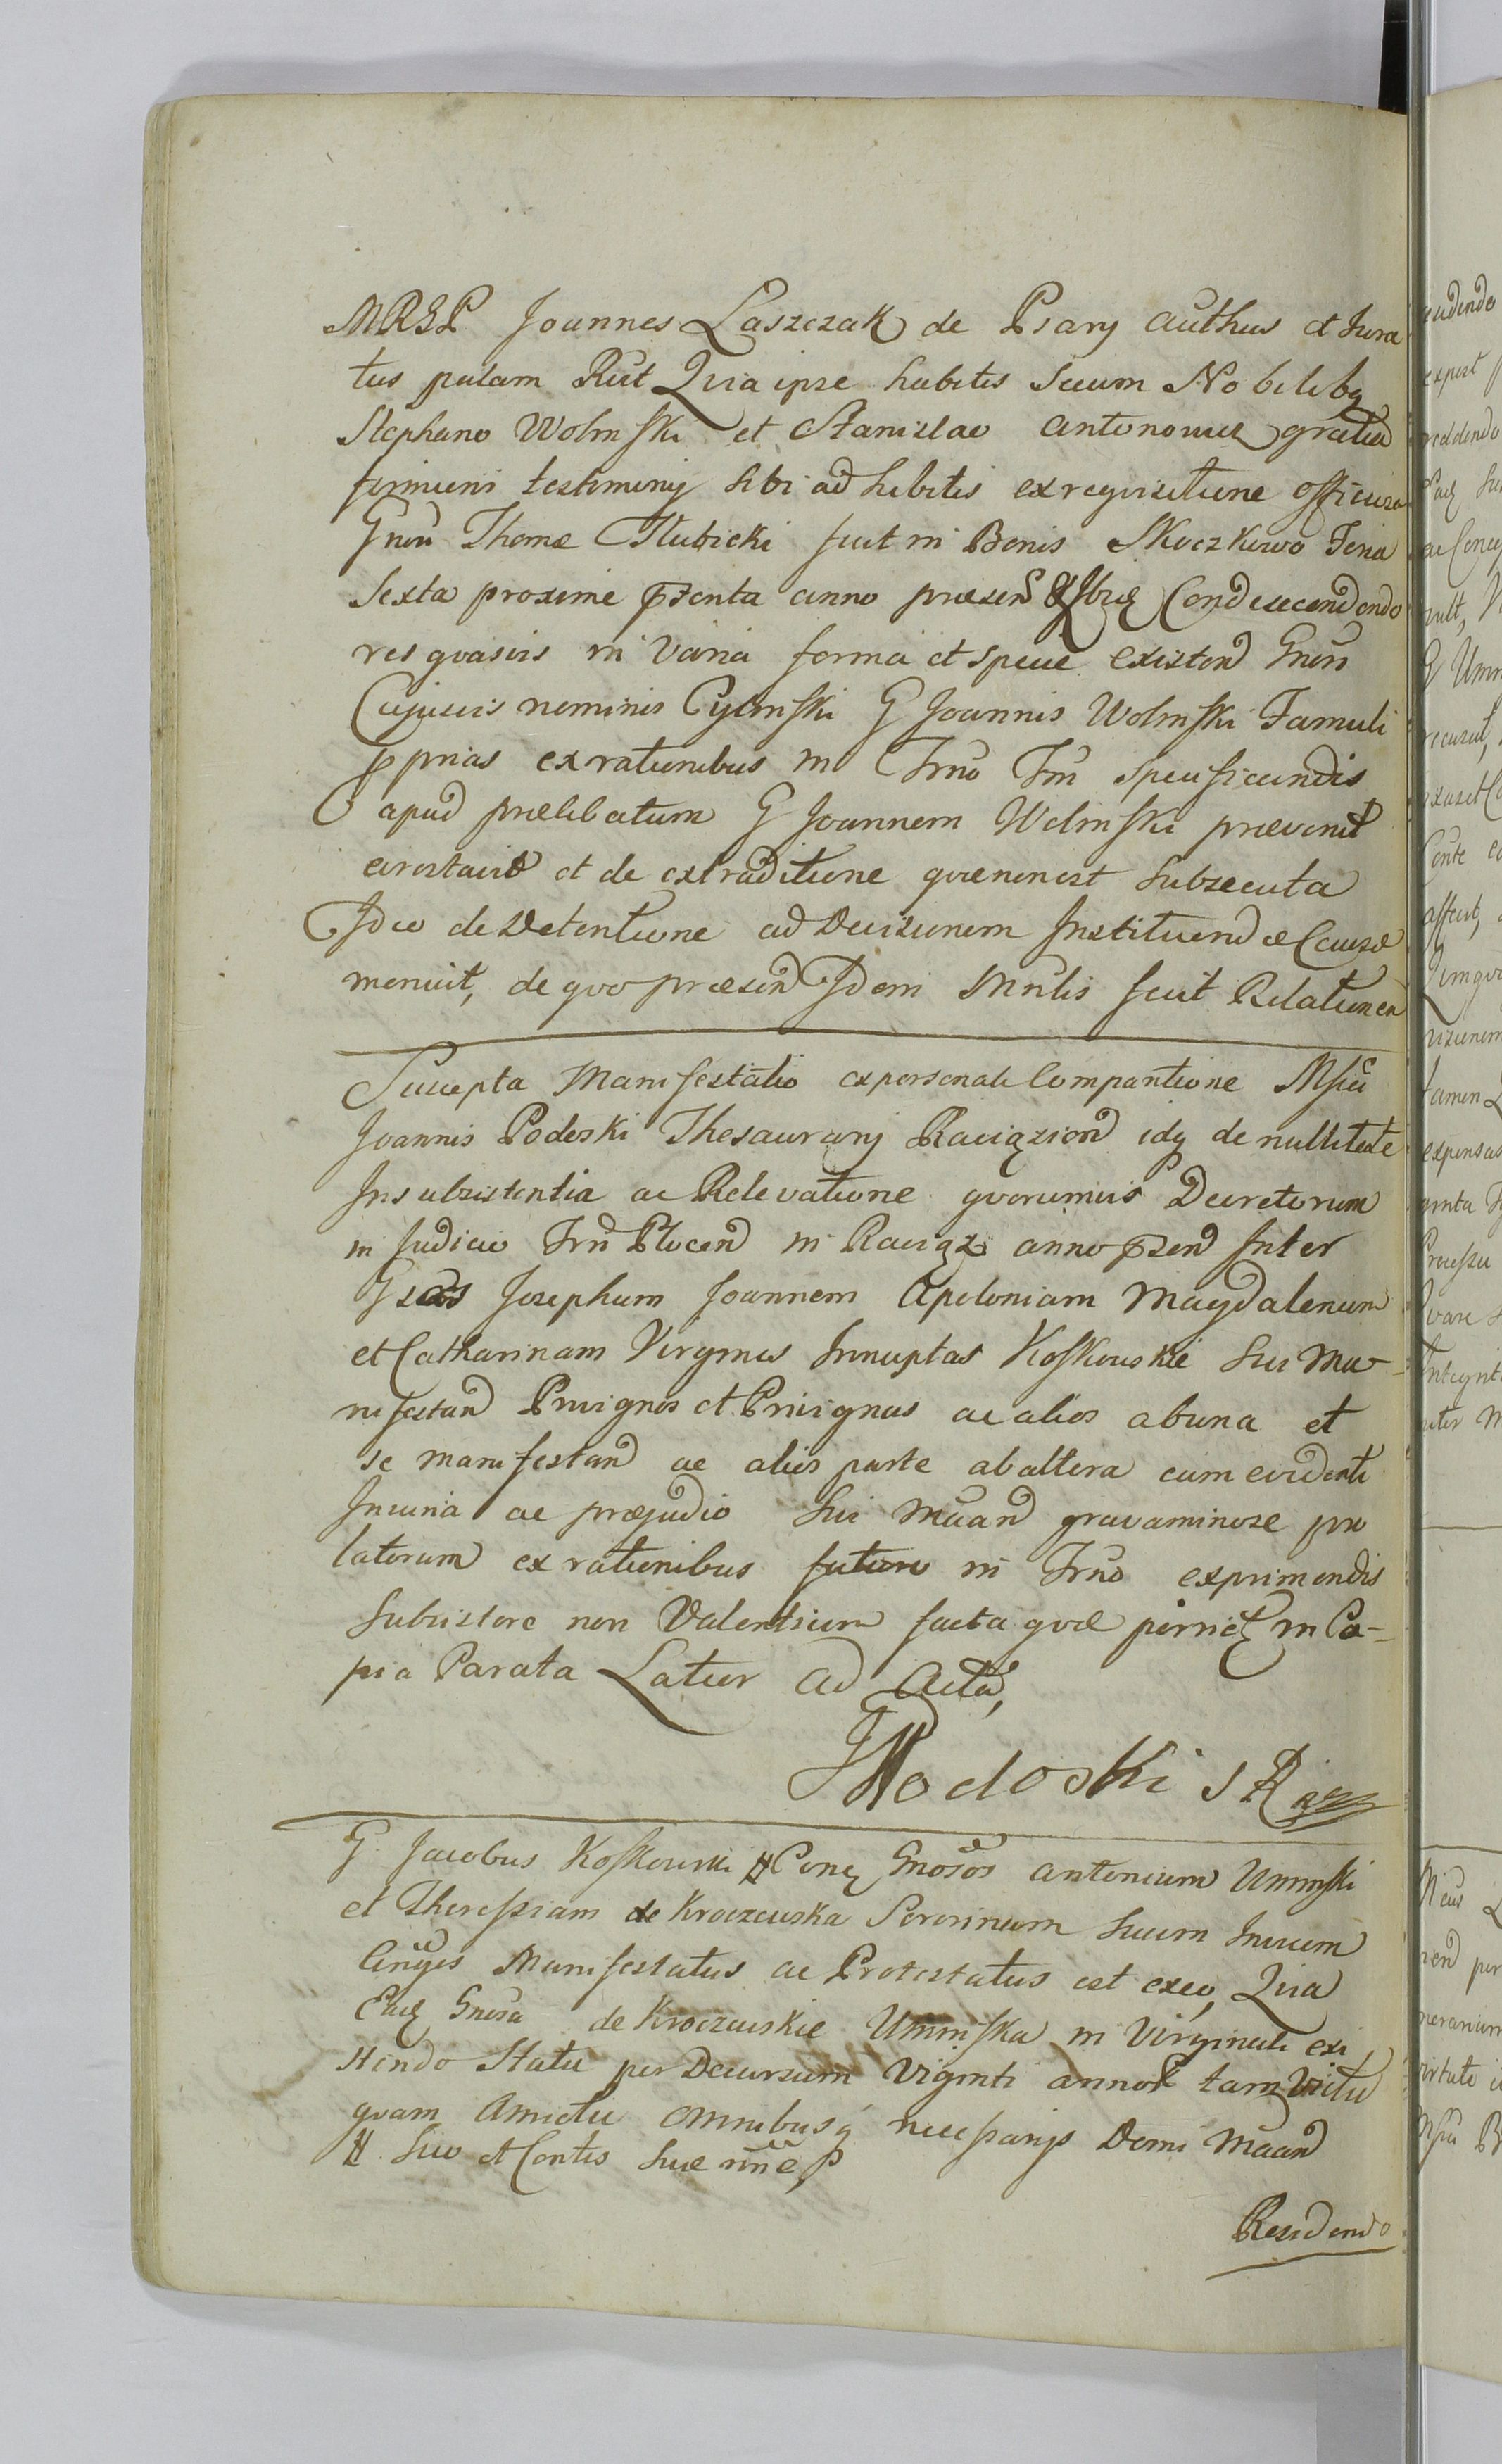 MRGP Joannes Laszczak de Psary authus et Jura
tus palam Rūt Quia ipse habitis Secum Nobilibq
Stephano Wolmski et Stanislao antonowicz gratia
firmieris testimonij sibi adhibitis ex requisitione officiosa
Gnsi Thomæ Tłubicki fuit in Bonis Skoczkowo Feria
Sexta proxime pzenta anno præsen Condescendendo
res quasvis in varia forma et specie existend Gnsi
Cujusvis nominis Pycinski G Joannis Wolmski Famuli
pprias ex rationibus in Trno Tm specificandis
apud prælibatum G Joannem Wolmski prævenit
arestavit et de extraditione quæ non est subsecuta
Ideo de Detentione ad Decisionem Instituend æ Causæ
monuit, de quo præsen Idem Mnlis fecit Relationem
Suscepta Manifestatio ex personali Comparitione Mfici
Joannis Podoski Thesaurarij Raciązien idq de nullitate
Insubsistentia ac Relevatione quorumvis Decretorum
in Judicio Trn Plocen in Raciąż anno pzen Inter
Gsos Josephum Joannem Apoloniam Magdalenam
et Catharinam Virgines Innuptas Koskowskie sui Ma-
nifestan Privignos et Privignas ac alios ab una et
se manifestan ac alios parte ab altera cum evidenti
Injuria ac præjudio sui Māan gravaminose pro
latorum ex rationibus futuro in Trno exprimendis
Subsistere non Valentium facta quæ pernicz in Co-
pia Parata Latior ad Acta,
JPodoski S R
G. Jacobus Koskowski # Conq Gnosos Antonium Uminski
et Theressiam de Kroczewska Sororinum suum Invicem
Cinges Manifestatus ac Protestatus est exeo, Quia
Eadq Gnosa de Kroczewskie Uminska in Virginali exi
stendo Statu per Decursum Viginti annor tam Victu
quam Amictu omnibusq necessarijs Domi Māan
# Suo et Contis suæ nne,
Residendo